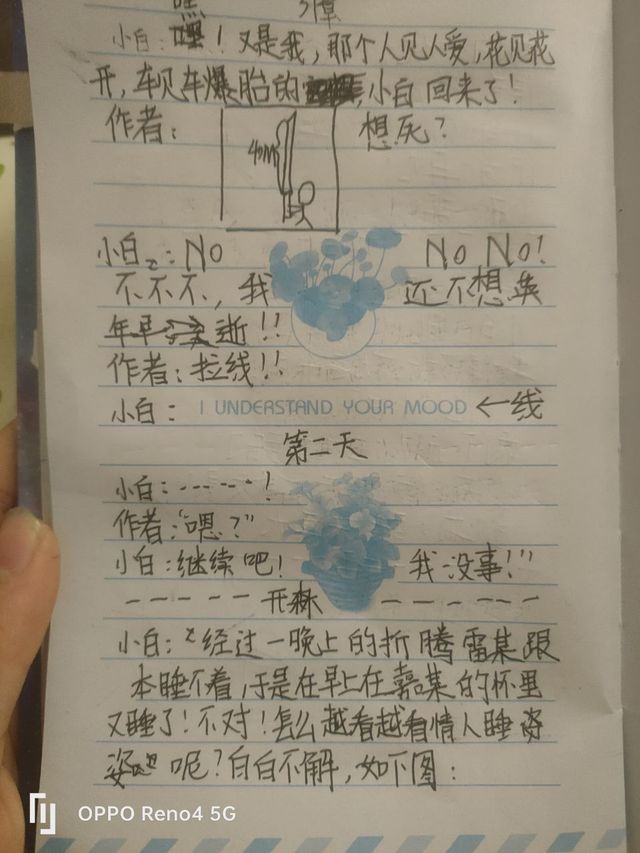 嘿
小白：嘿！又是我，那个人见人爱，花见花
开，车见车爆胎的，小白回来了！
作者： 想死？
40m
小白：NO NO NO！
不不不，我还不想英
年早逝！！
作者：拉线！！
小白： I UNDERSTAND YOUR MOOD ←线
第二天
小白：------！
作者：“嗯？”
小白：继续吧！我没事！”
----- 开森 ------
小白：“经过一晚上的折腾雷某跟
本睡不着，于是在早上在嘉某的怀里
又睡了！不对！怎么越看越有情人睡姿
呢？白白不解，如下图：
OPPO Reno4 5G